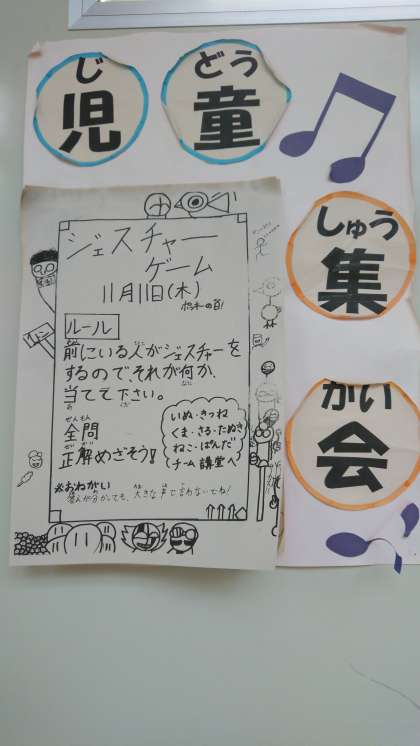 じ
児
どう
童
しゅう
集
かい
会
ジェスチャー
ゲーム
11月11日(木)
ポッキーの日!
ルール
前にいる人がジェスチャーを
するので、それが何か、
当てて下さい。
ぜんもん
全問
せいかい
正解めざそう!
いぬ・きつね
くま・さる・たぬき
ねこ・ぱんだ
チーム講堂へ
※おねがい
大きな声で言わないでね!